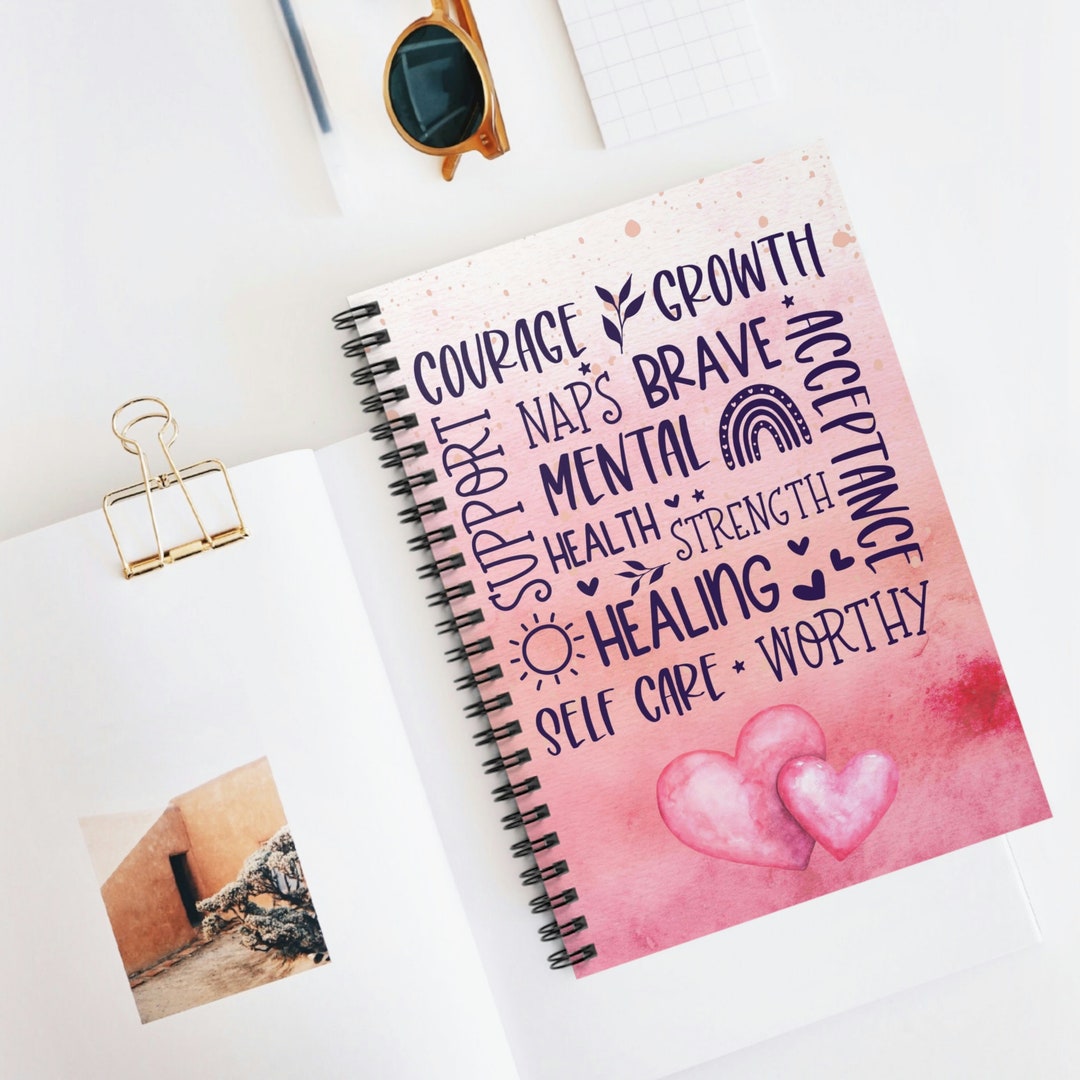 COURAGE GROWTH
SUPPORT
NAPS BRAVE
ACCEPTANCE
MENTAL
HEALTH STRENGTH
HEALING
SELF CARE WORTHY